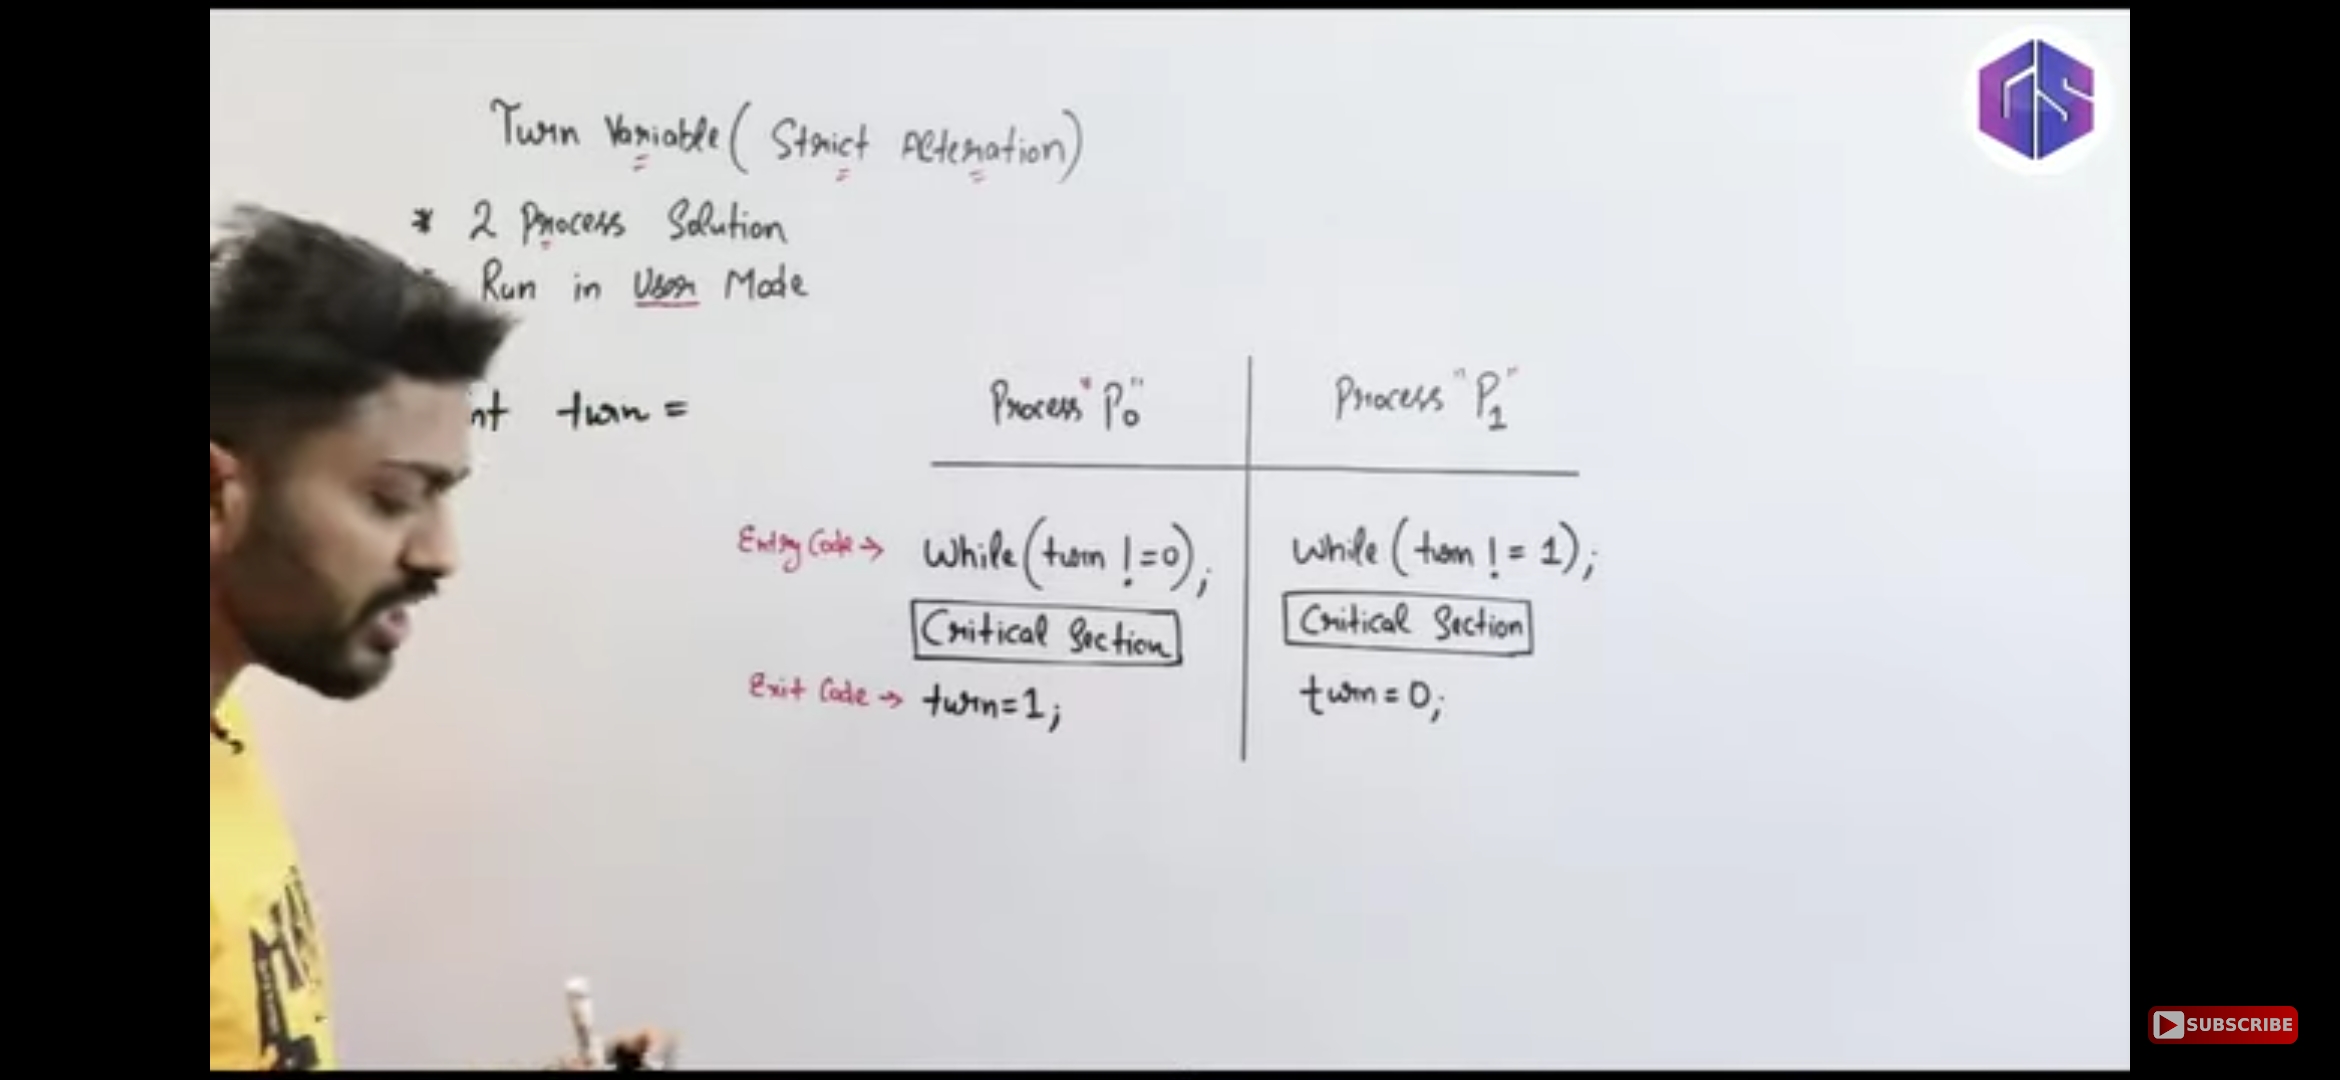 GS
Turn Variable ( Strict Alteration)
* 2 Process Solution
Run in User Mode
int turn =
Process "P0"
Process "P1"
Entry Code → While (turn != 0);
While (turn != 1);
Critical Section
Critical Section
Exit Code → turn=1;
turn = 0;
SUBSCRIBE